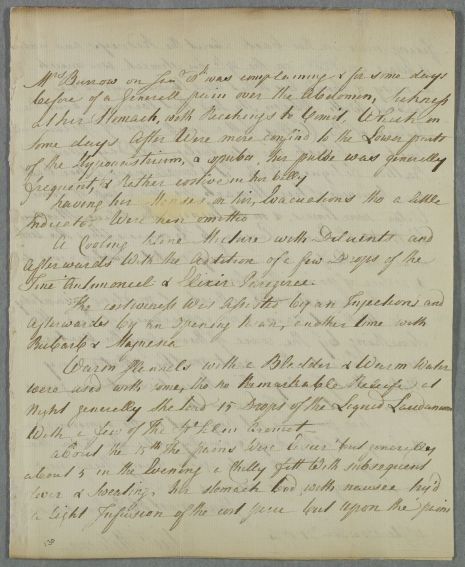 Mrs Burrow on Jany 8th was complaining & for some days
before of a Generall pain over the Abdomen, Sickness
at her Stomach, with Reachings to Vomit, Which in
some days After Were more confin'd to the Lower parts
of the Hypogastrium, & ospubis, her pulse was generally
frequent, & Rather costive in her belly
having her Menses on her, Evacuations tho a little
indicated Were here omitted
A Cooling Saline Mixture with Diluents and
Afterwards With the addition of a few Drops of the
Tinc Antimonial & Elixir Paregoric.
The costiveness Was Assisted by an Injections and
Afterwards by an opening Draut, another time with
Rubarb & Magnesia
Warm flannels with a Bladder & Warm Water
were used with some, tho no Remarkable Releife at
Night generally she had 15 Drops of the Liquid Laudanum
With a few of the
about the 14th The pains Were Easier but generally
about 5 in the Evening a Chilly fitt With subsequent
fever & Sweating, her stomach bad with nausea try'd
a Light Infusion of the cort peru but upon the pains